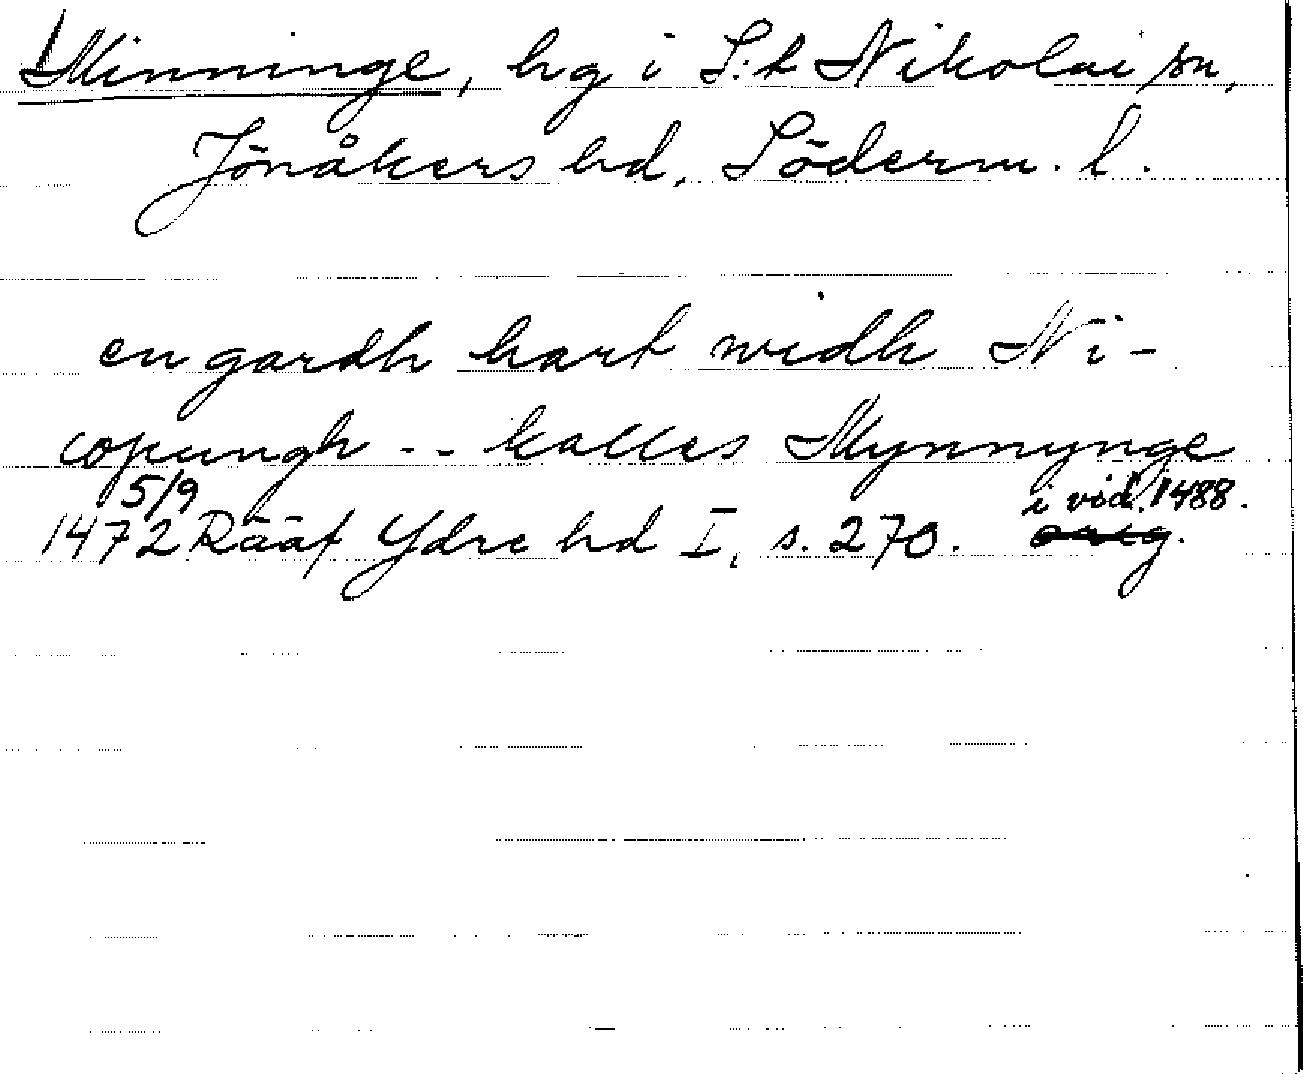 Minninge, hg i S:t Nikolai sn,
Jönåkers hd, Söderm. l.
en gardh hart widh Ni-
copungh -- kalles Mynnynge
5/9 i vid. 1488.
1472 Rääf Ydre hd I, s. 270. orig.